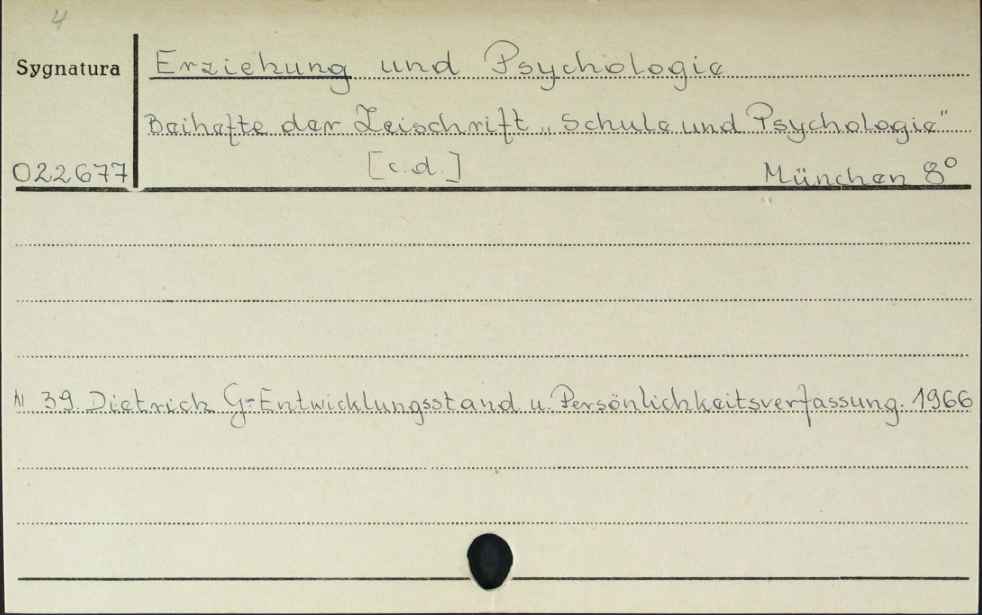 4
Sygnatura Erziehung und Psychologie
Beihefte der Zeischrift „Schule und Psychologie"
022677 [c.d.] München 8°
N 39. Dietrich G-Entwicklungsstand u. Persönlichkeitsverfassung. 1966